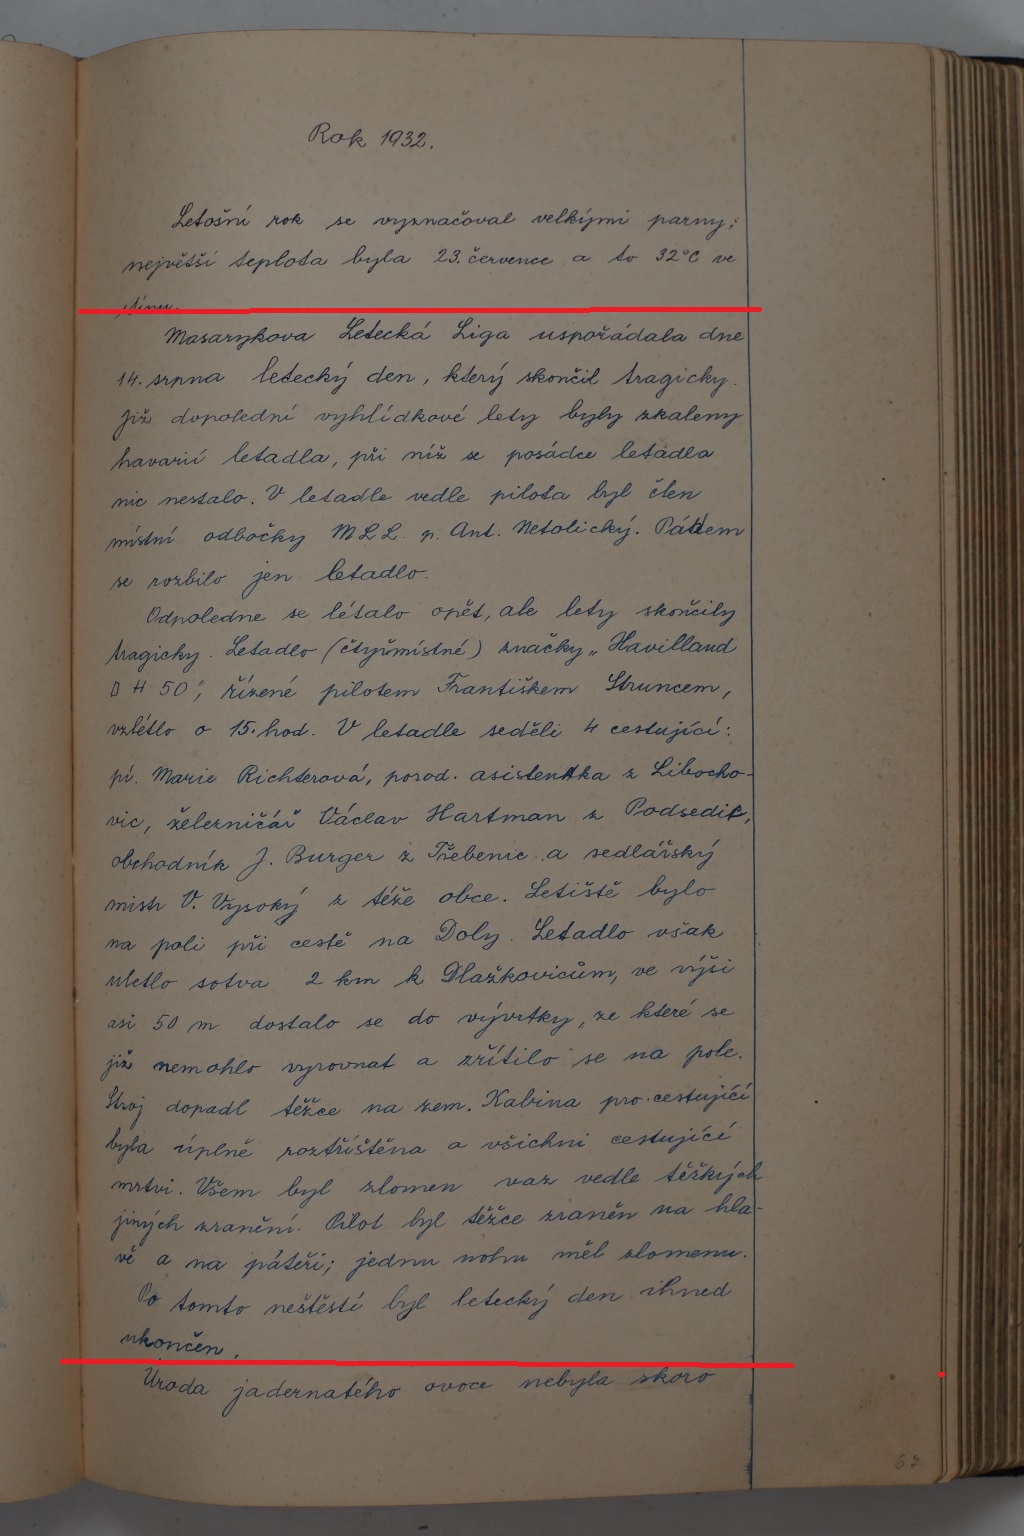 Rok 1932.
Letošní rok se vyznačoval velkými parny;
největší teplota byla 23. července a to 32°C ve
stínu.
Masarykova Letecká Liga uspořádala dne
14. srpna letecký den, který skončil tragicky.
Již dopolední vyhlídkové lety byly zkaleny
havarií letadla, při níž se posádce letadla
nic nestalo. V letadle vedle pilota byl člen
místní odbočky MLL p. Ant. Netolický. Pádem
se rozbilo jen letadlo.
Odpoledne se létalo opět, ale lety skončily
tragicky. Letadlo (čtyřmístné) značky „Havilland
D H 50", řízené pilotem Františkem Struncem,
vzlétlo o 15. hod. V letadle seděli 4 cestující:
pí. Marie Richterová, porod. asistentka z Libocho-
vic, železničář Václav Hartman z Podsedic,
obchodník J. Burger z Třebenic a sedlářský
mistr V. Vysoký z téže obce. Letiště bylo
na poli při cestě na Doly. Letadlo však
uletlo sotva 2 km k Dlažkovicům, ve výši
asi 50 m dostalo se do vývrtky, ze které se
již nemohlo vyrovnat a zřítilo se na pole.
Stroj dopadl těžce na zem. Kabina pro cestující
byla úplně roztříštěna a všichni cestující
mrtvi. Všem byl zlomen vaz vedle těžkých
jiných zranění. Pilot byl těžce zraněn na hla-
vě a na páteři; jednu nohu měl zlomenu.
Po tomto neštěstí byl letecký den ihned
ukončen.
Úroda jadernatého ovoce nebyla skoro
67